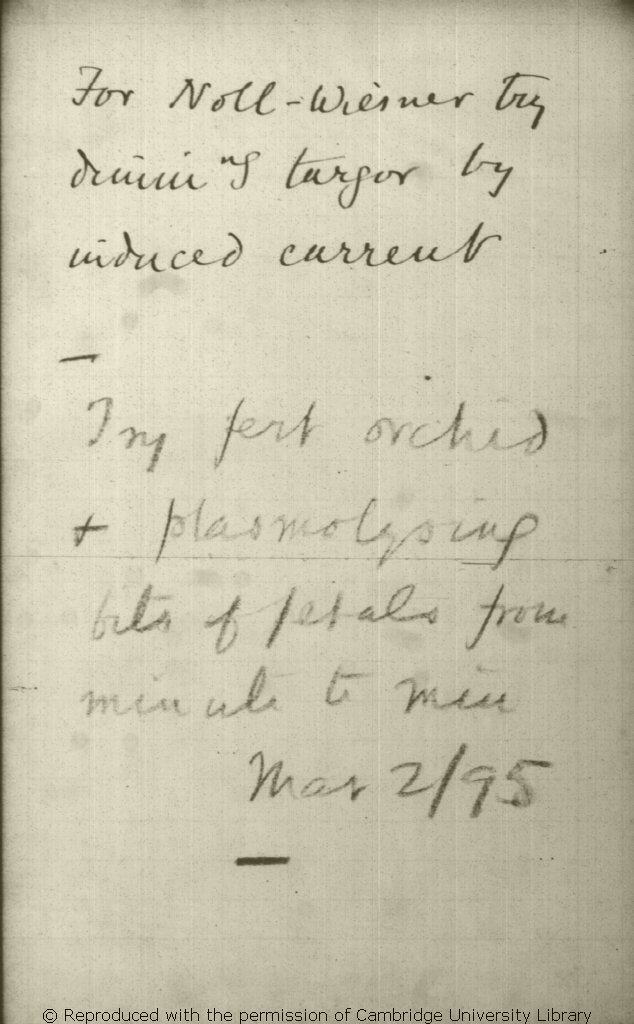 For Noll-Wiesner try
dimin^ng turgor by
induced current
—
Try fert orchid
+ plasmolysing
bits of petals from
minute to min
Mar 2/95
—
© Reproduced with the permission of Cambridge University Library